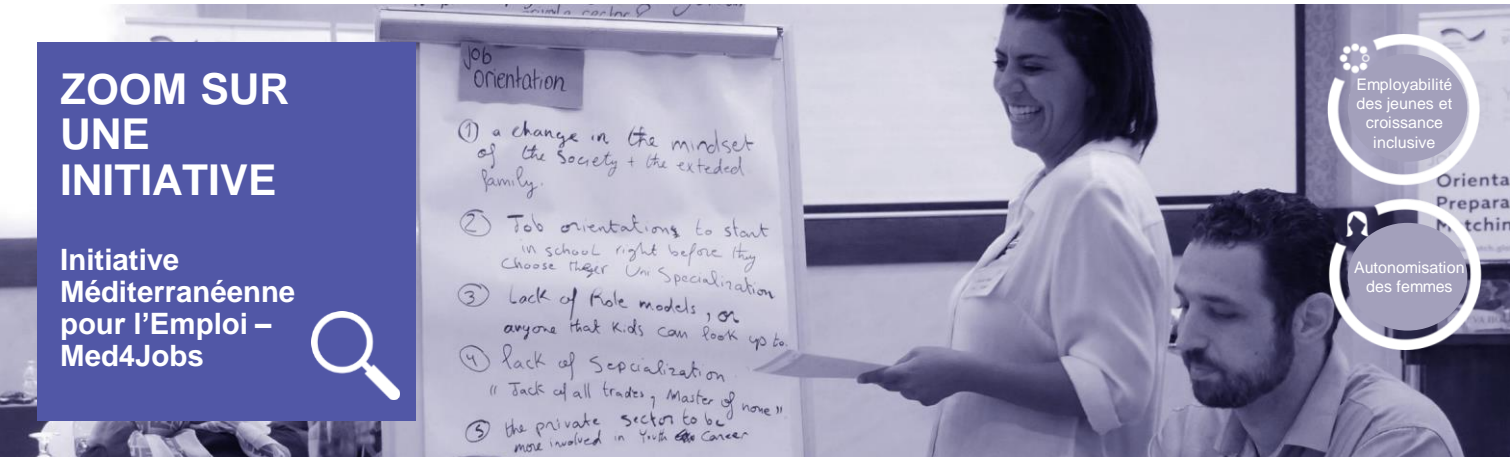 ZOOM SUR
UNE
INITIATIVE
Initiative
Méditerranéenne
pour l'Emploi –
Med4Jobs
job
orientation
① a change in the mindset
of the society + the exteded
family.
② Job orientations to start
in school right before they
choose theger Uni Specialization
③ Lack of Role models, or
anyone that kids can look up to.
④ lack of Sepcialization
" Jack of all trades, Master of none "
⑤ the private sector to be
more involved in Youth Career
Employabilité
des jeunes et
croissance
inclusive
Orienta
Prepara
Matchin
Autonomisation
des femmes